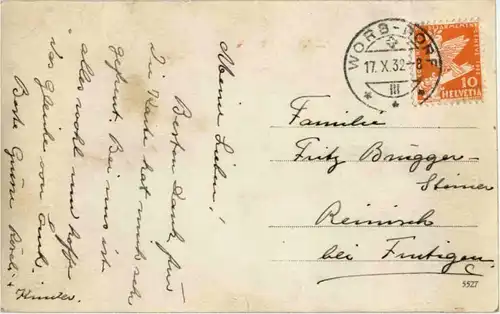 Meine Lieben!
Besten Dank für
die Karte hat mich sehr
gefreut. Bei uns ist
alles wohl und hoffe
das gleiche von Euch.
Beste Grüsse Rösli +
Kinder.
WORB-DORF
17. X. 32-8
III
DÉSARMEMENT
10
HELVETIA
Familie
Fritz Brügger-
Steiner
Reinisch
bei Frutigen
5527